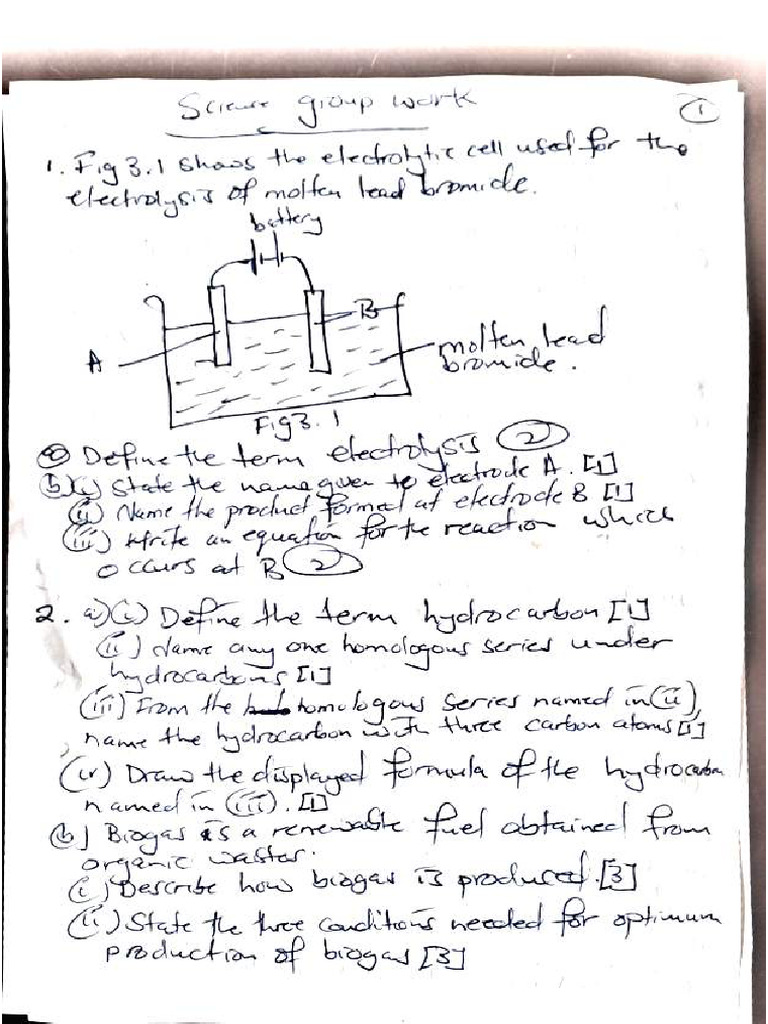 Science group work
1
1. Fig 3.1 shows the electrolytic cell used for the
electrolysis of molten lead bromide.
battery
B
A
molten lead
bromide.
Fig 3.1
a) Define the term electrolysis (2)
b)(i) State the name given to electrode A. [1]
(ii) Name the product formed at electrode B [1]
(iii) Write an equation for the reaction which
occurs at B (2)
2. a)(i) Define the term hydrocarbon [1]
(ii) Name any one homologous series under
hydrocarbons [1]
(iii) From the homologous series named in (ii),
name the hydrocarbon with three carbon atoms [1]
(iv) Draw the displayed formula of the hydrocarbon
named in (iii). [1]
(b) Biogas is a renewable fuel obtained from
organic wastes.
(i) Describe how biogas is produced. [3]
(ii) State the three conditions needed for optimum
production of biogas [3]